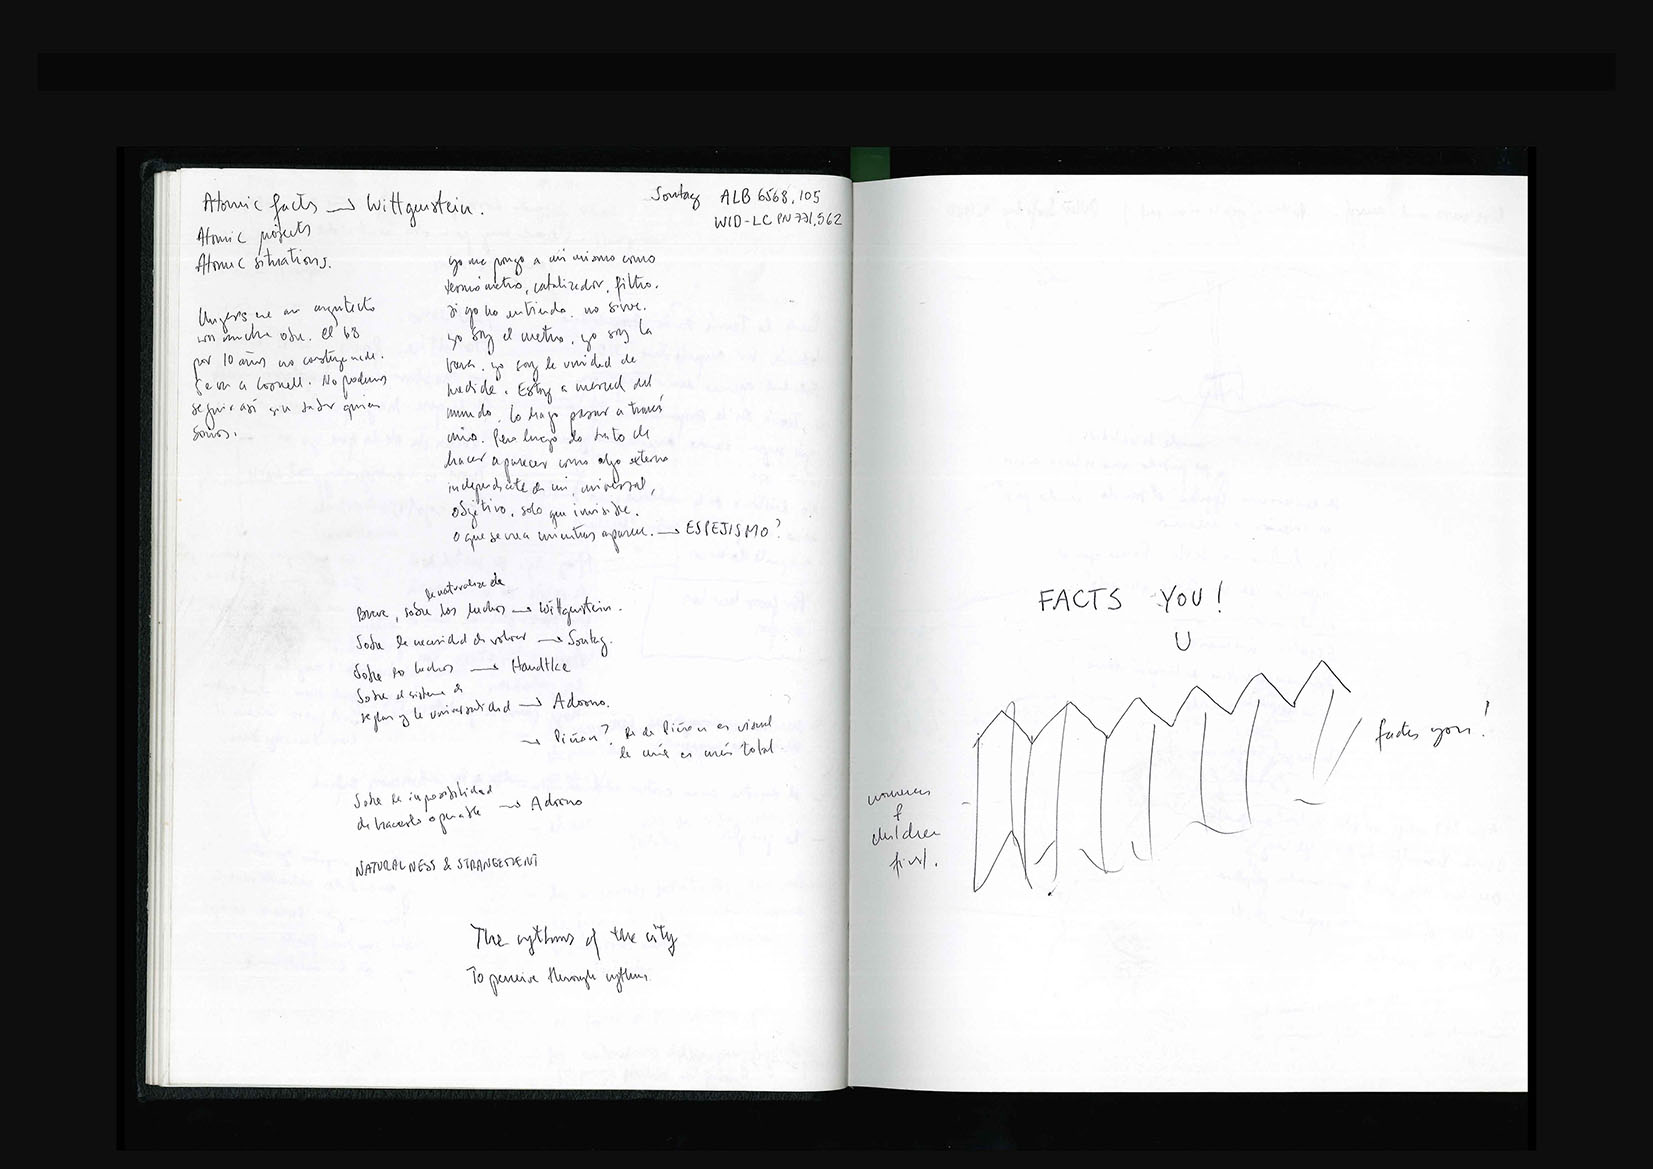 Atomic facts → Wittgenstein.
Atomic projects
Atomic situations.
Sontag ALB 6568.105
WID-LC PN 771.S62
Ungers era un arquitecto
con mucha obra. El 68
por 10 años no construye nada.
Se va a Cornell. No podemos
seguir así sin saber quien
somos.
yo me pongo a mi mismo como
termómetro, catalizador, filtro.
si yo no entiendo, no sirve.
yo soy el metro, yo soy la
vara, yo soy la unidad de
medida. Estoy a merced del
mundo. Lo hago pasar a través
mio. Pero luego lo trato de
hacer aparecer como algo externo
independiente de mi, universal,
objetivo, solo que invisible.
o que se vea mientras aparece. → ESPEJISMO?
la naturaleza de
Breve, sobre los hechos → Wittgenstein.
Sobre la necesidad de volver → Sontag.
Sobre los hechos → Handtke
Sobre el sistema de
reglas y la universalidad → Adorno.
→ Piñon? La de Piñon es visual
la mía es más total
Sobre la imposibilidad
de hacerlo operable → Adorno
NATURALNESS & STRANGEMENT
The rythms of the city
To perceive through rythms.
FACTS YOU!
U
facts you!
womens
&
children
first.